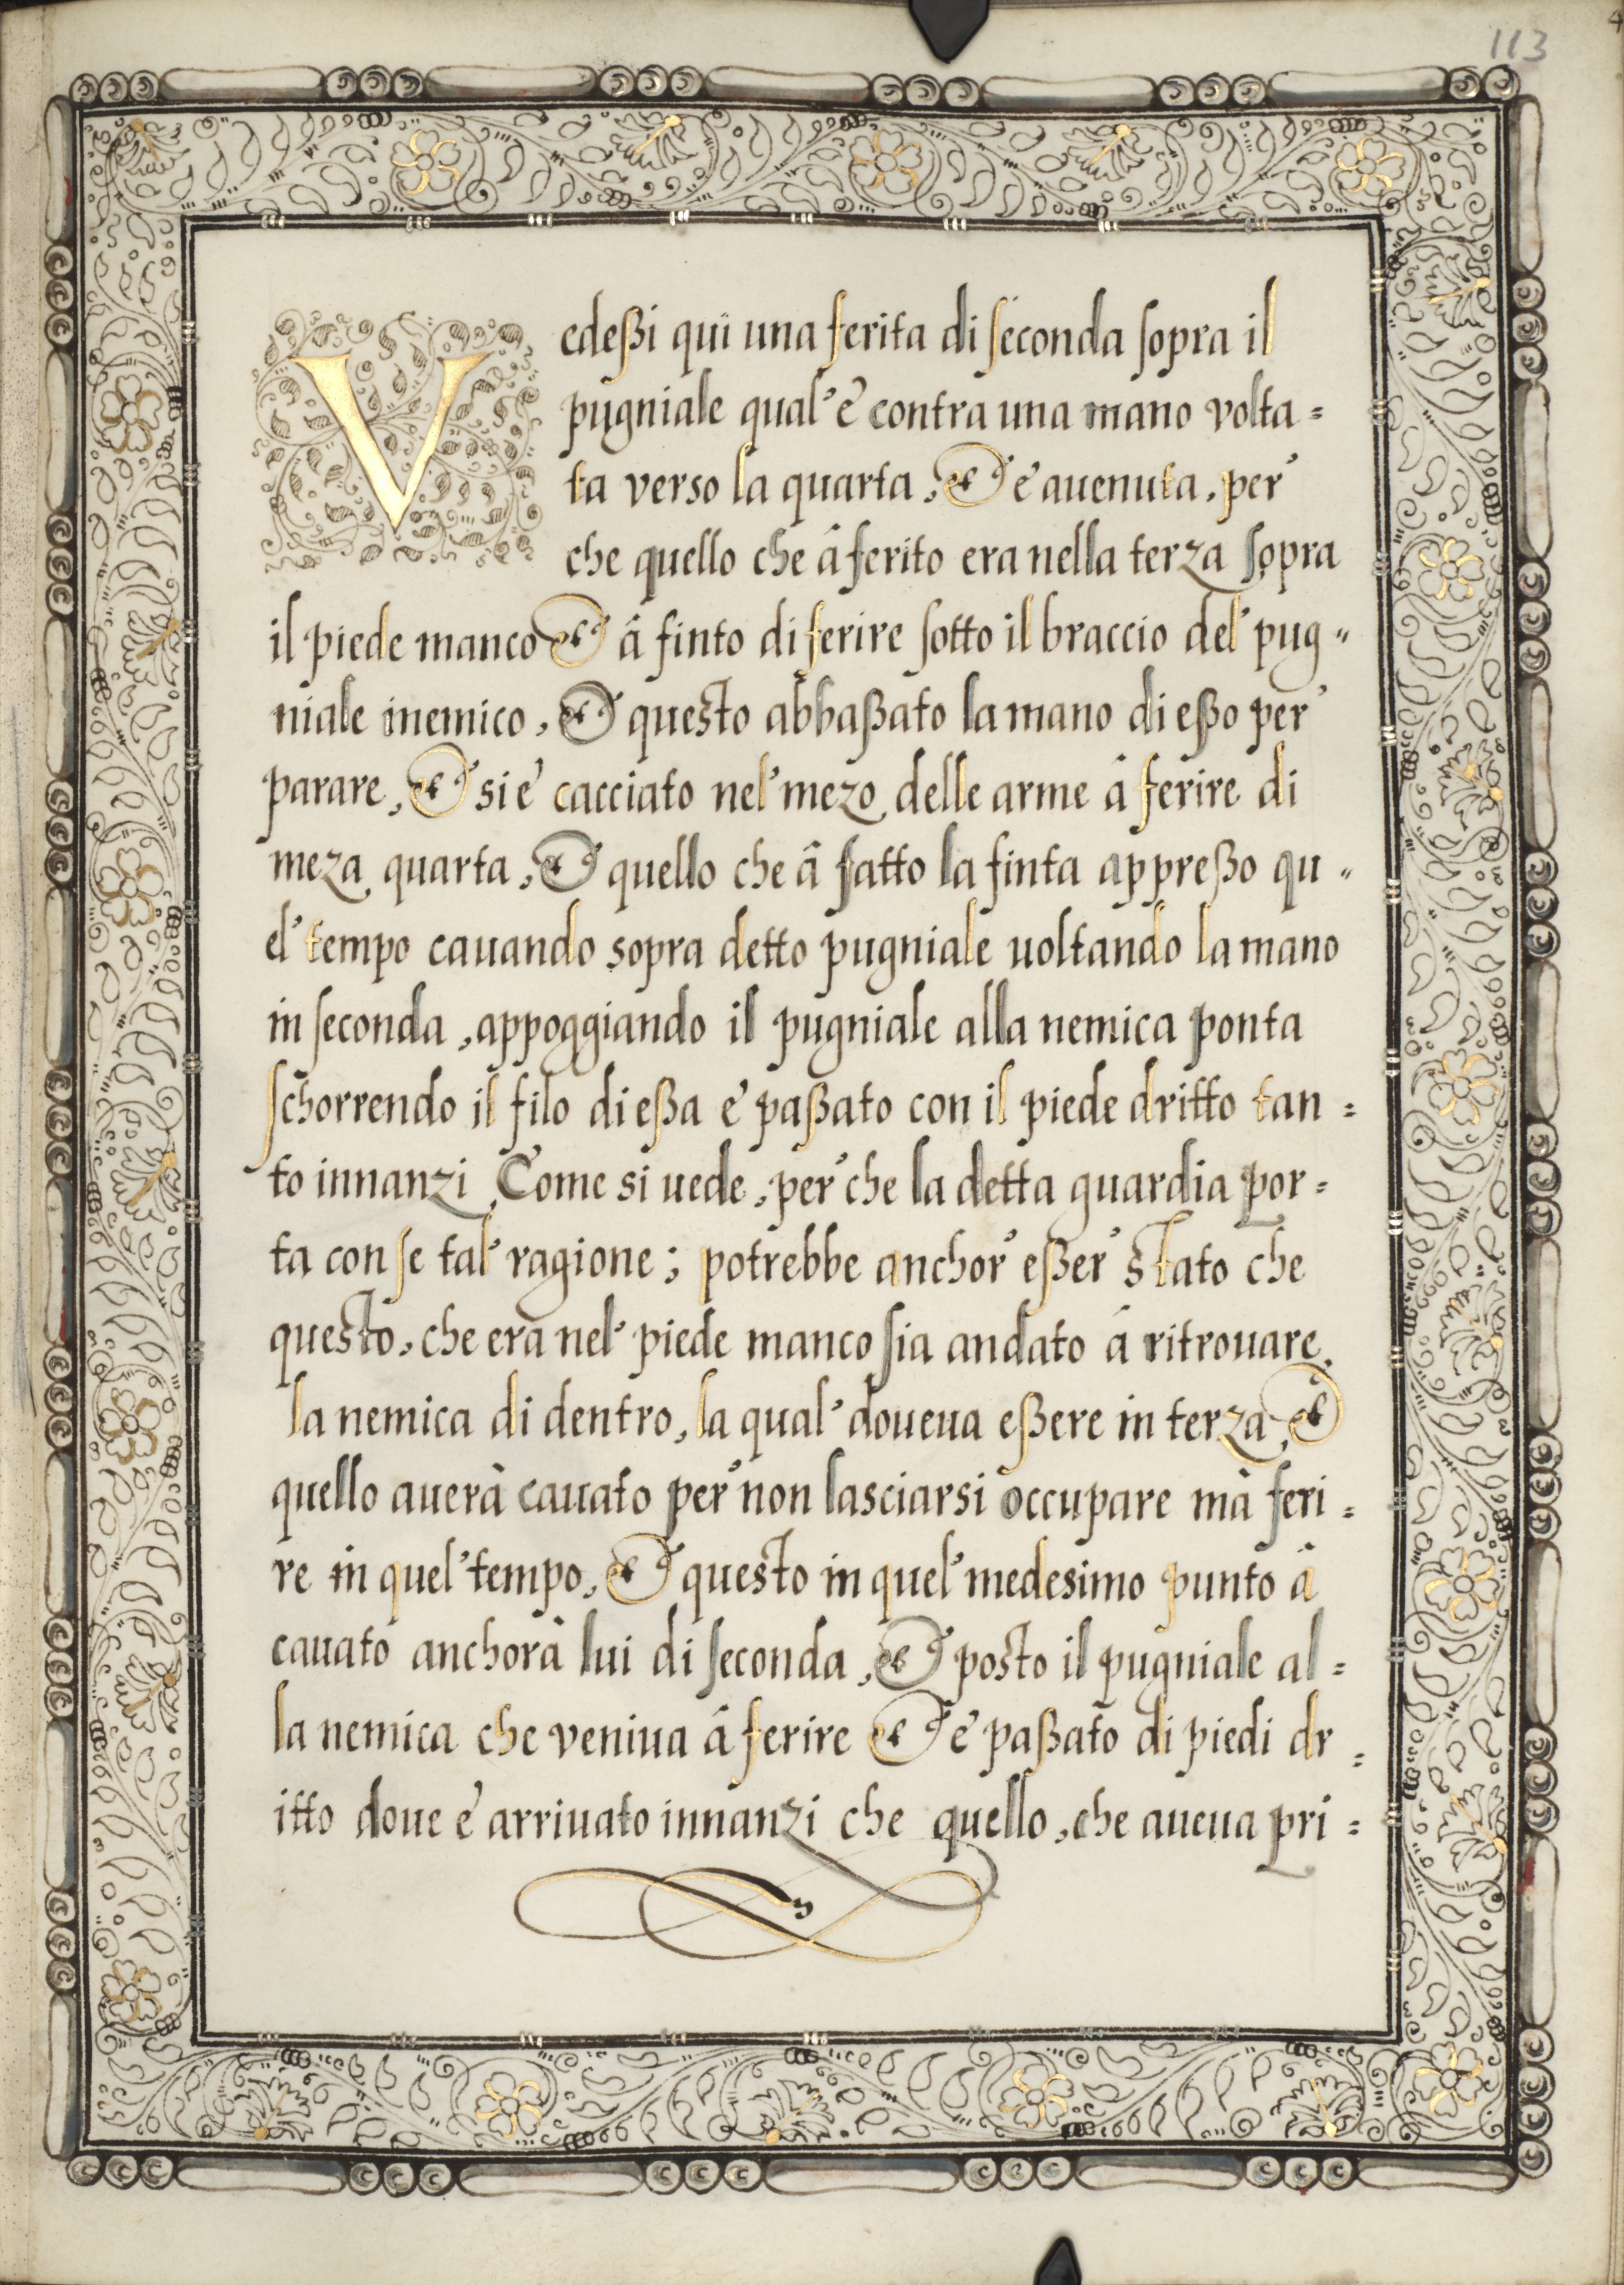 113
Vedeßi qui una ferita di seconda sopra il
pugniale qual' è contra una mano volta=
ta verso la quarta, et è auenuta, per
che quello che â ferito era nella terza sopra
il piede manco et â finto di ferire sotto il braccio del pug=
niale inemico, et questo abbaßato la mano di eßo per
parare, et si è cacciato nel' mezo delle arme â ferire di
meza quarta, et quello che â fatto la finta appreßo qu=
el' tempo cauando sopra detto pugniale uoltando la mano
in seconda, appoggiando il pugniale alla nemica ponta
schorrendo il filo di eßa è paßato con il piede dritto tan=
to innanzi Come si uede, per che la detta guardia por=
ta con se tal' ragione; potrebbe anchor eßer stato che
questo, che era nel' piede manco sia andato â ritrouare
la nemica di dentro, la qual' doueua eßere in terza, et
quello auerà cauato per non lasciarsi occupare mà feri=
re in quel' tempo, et questo in quel' medesimo punto â
cauato anchorà lui di seconda, et posto il pugniale al=
la nemica che veniua â ferire et è paßato di piedi dr=
itto doue è arriuato innanzi che quello, che aueua pri=